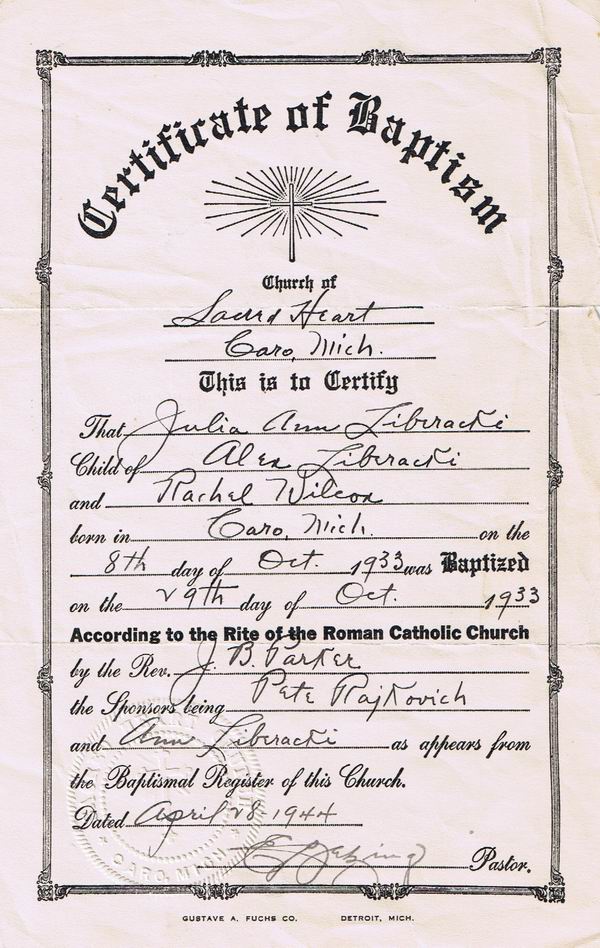 Certificate of Baptism
Church of
Sacred Heart
Caro, Mich.
This is to Certify
That Julia Ann Liberacki
Child of Alex Liberacki
and Rachel Wilcox
born in Caro, Mich. on the
8th day of Oct. 1933 was Baptized
on the 29th day of Oct. 1933
According to the Rite of the Roman Catholic Church
by the Rev. J. B. Parker
the Sponsors being Pete Rajkovich
and Ann Liberacki as appears from
the Baptismal Register of this Church.
Dated April 28 1944
Pastor.
CARO, MICH.
GUSTAVE A. FUCHS CO. DETROIT, MICH.